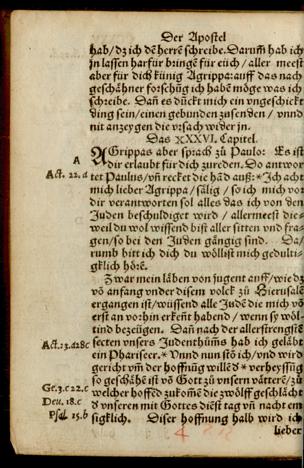 Der Apostel
hab/dz ich dē herrē schreibe. Darum̄ hab ich
jn lassen harfür bringē für eüch/aller meest
aber für dich künig Agrippa: auff das nach
geschähner forschūg ich habē möge was ich
schreibe. Dañ es dückt mich ein vngeschickt
ding sein/einen gebunden zusenden/vnnd
nit anzeygen die vrsach wider jn.
Das XXXVI. Capitel.
A
AGrippas aber sprach zů Paulo: Es ist
dir erlaubt für dich zureden. Do antwor
Act. 22. a
tet Paulus/vn̄ reckt die hād auß:*Jch acht
mich lieber Agrippa/sälig/so ich mich vor
dir verantworten sol alles das ich von den
Juden beschuldiget wird/allermeest die-
weil du wol wissend bist aller sitten vnd fra-
gen/so bei den Juden gängig sind. Da-
rumb bitt ich dich du wöllist mich gedulti-
gklich hörē.
Zwar mein läben von jugent auff/wie dz
vō anfang vnder disem volck zů Hierusalē
ergangen ist/wüssend alle Judē die mich vō
erst an vorhin erkēnt habend/wenn sy wöl-
tind bezügen. Dañ nach der allerstrengstē
Act. 23. a 28 c
secten vnsers Judenthūms hab ich geläbt
ein Phariseer.*Vnnd nun stō ich/vnd wird
gericht vm̄ der hoffnūg willē d*verheyssūg
Ge. 3. c 22. c
so geschähē ist vō Gott zů vnsern vätterē/zů
welcher hoffēd zukomē die zwölff geschlächt
Deu. 18. c
d vnseren mit Gottes diēst tag vn̄ nacht em
Psal. 15. b
sigklich. Diser hoffnung halb wird ich
lieber